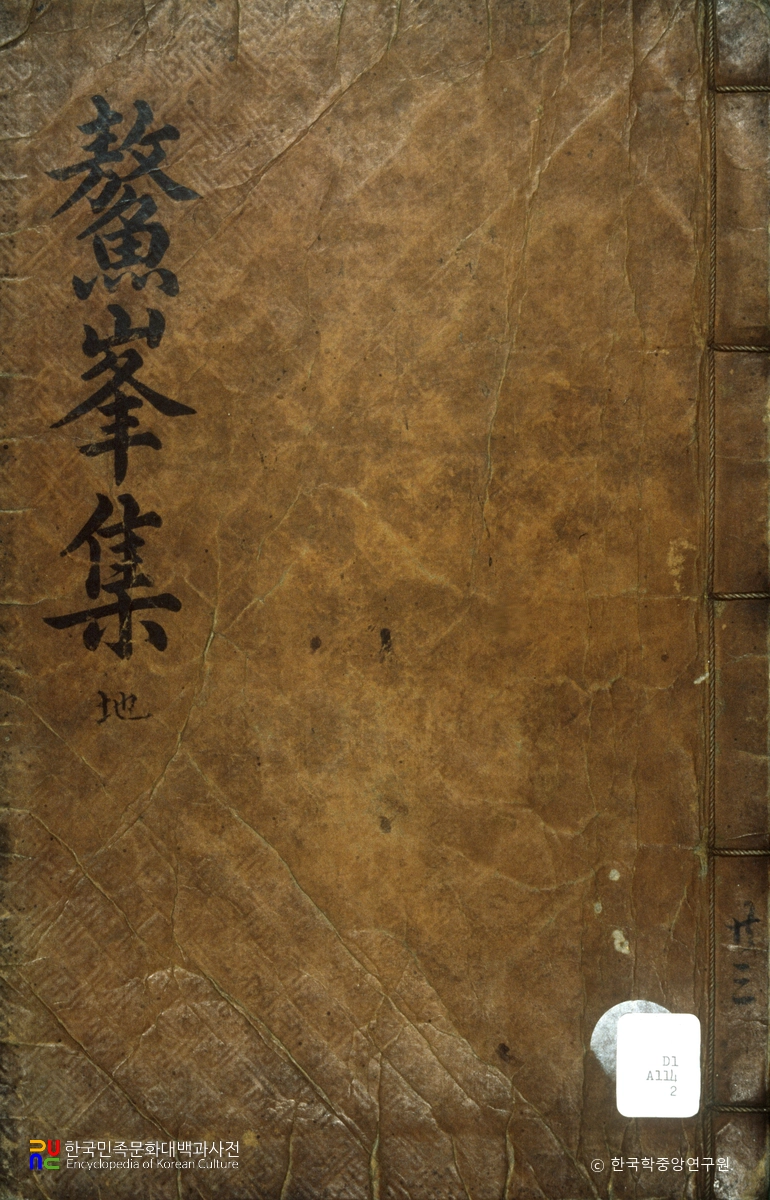 鰲峯集
地
D1
A114
2
한국민족문화대백과사전
Encyclopedia of Korean Culture
© 한국학중앙연구원